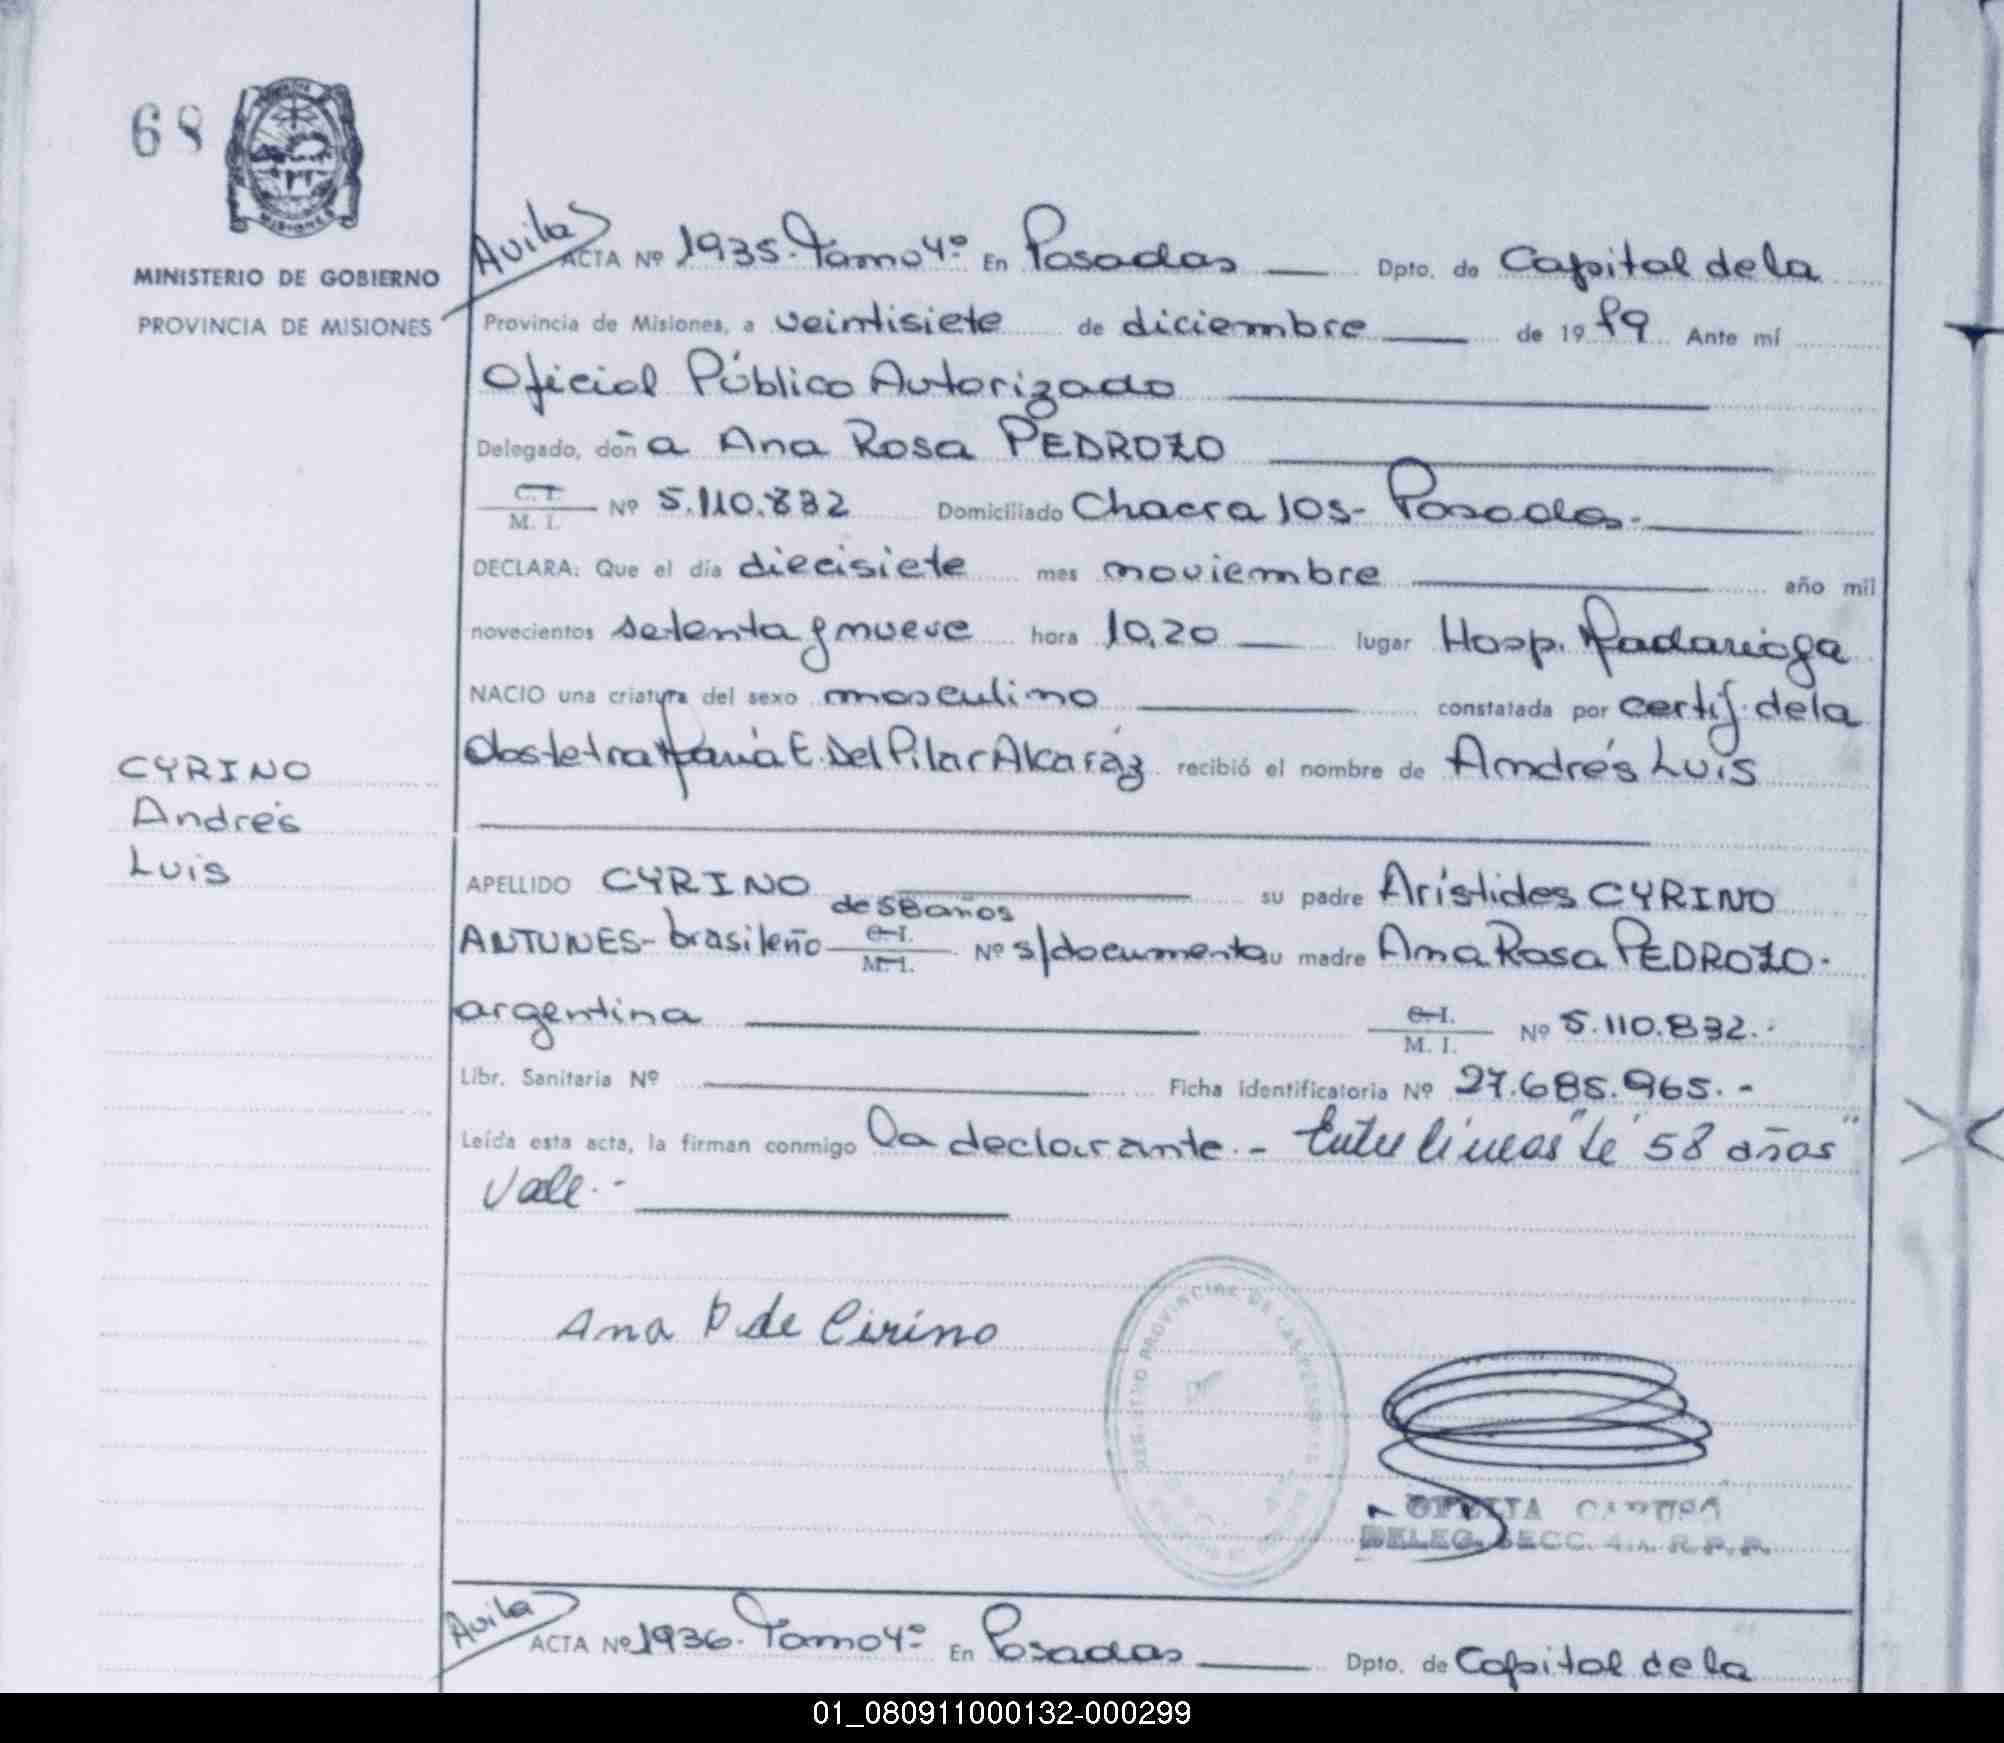 68
MINISTERIO DE GOBIERNO
PROVINCIA DE MISIONES
Avila
ACTA Nº 1935. Tomo 4º En Posadas Dpto. de Capital de la
Provincia de Misiones, a veintisiete de diciembre de 19 79 Ante mí
Oficial Público Autorizado
Delegado, doña Ana Rosa PEDROZO
C. I. / M. I. Nº 5.110.832 Domiciliado Chacra 105- Posadas.
DECLARA: Que el día diecisiete mes noviembre año mil
novecientos setenta y nueve hora 10,20 lugar Hosp. Madariaga
NACIO una criatura del sexo masculino constatada por certif. de la
Obstetra María E. Del Pilar Alcaráz recibió el nombre de Andrés Luis
CYRINO
Andrés
Luis
APELLIDO CYRINO su padre Arístides CYRINO
de 58 años
ANTUNES- brasileño C. I. / M. I. Nº s/documento su madre Ana Rosa PEDROZO.
argentina C. I. / M. I. Nº 5.110.832.-
Libr. Sanitaria Nº Ficha identificatoria Nº 27.685.965.-
Leída esta acta, la firman conmigo la declarante.- Entre líneas "de 58 años"
Vale.-
Ana P. de Cirino
REGISTRO PROVINCIAL DE LAS PERSONAS
DELEG. SECC. 4a. R.P.P.
Avila
ACTA Nº 1936. Tomo 4º En Posadas Dpto. de Capital de la
01_080911000132-000299